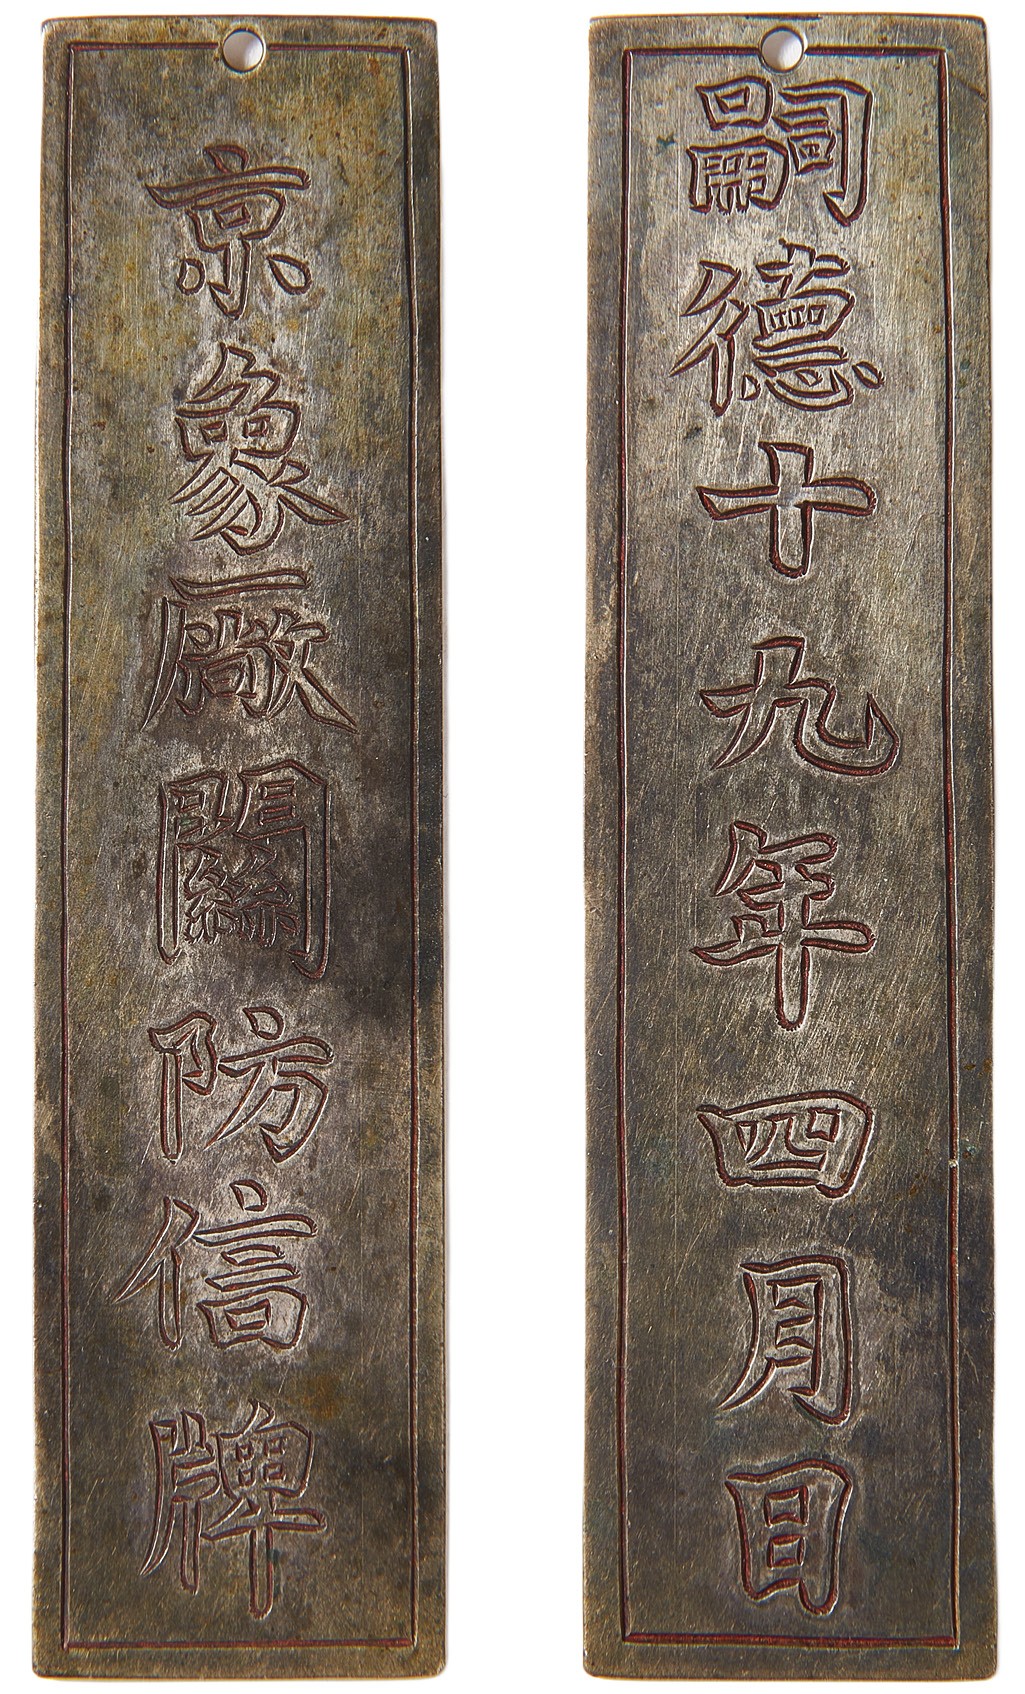 京象廠關防信牌
嗣德十九年四月日